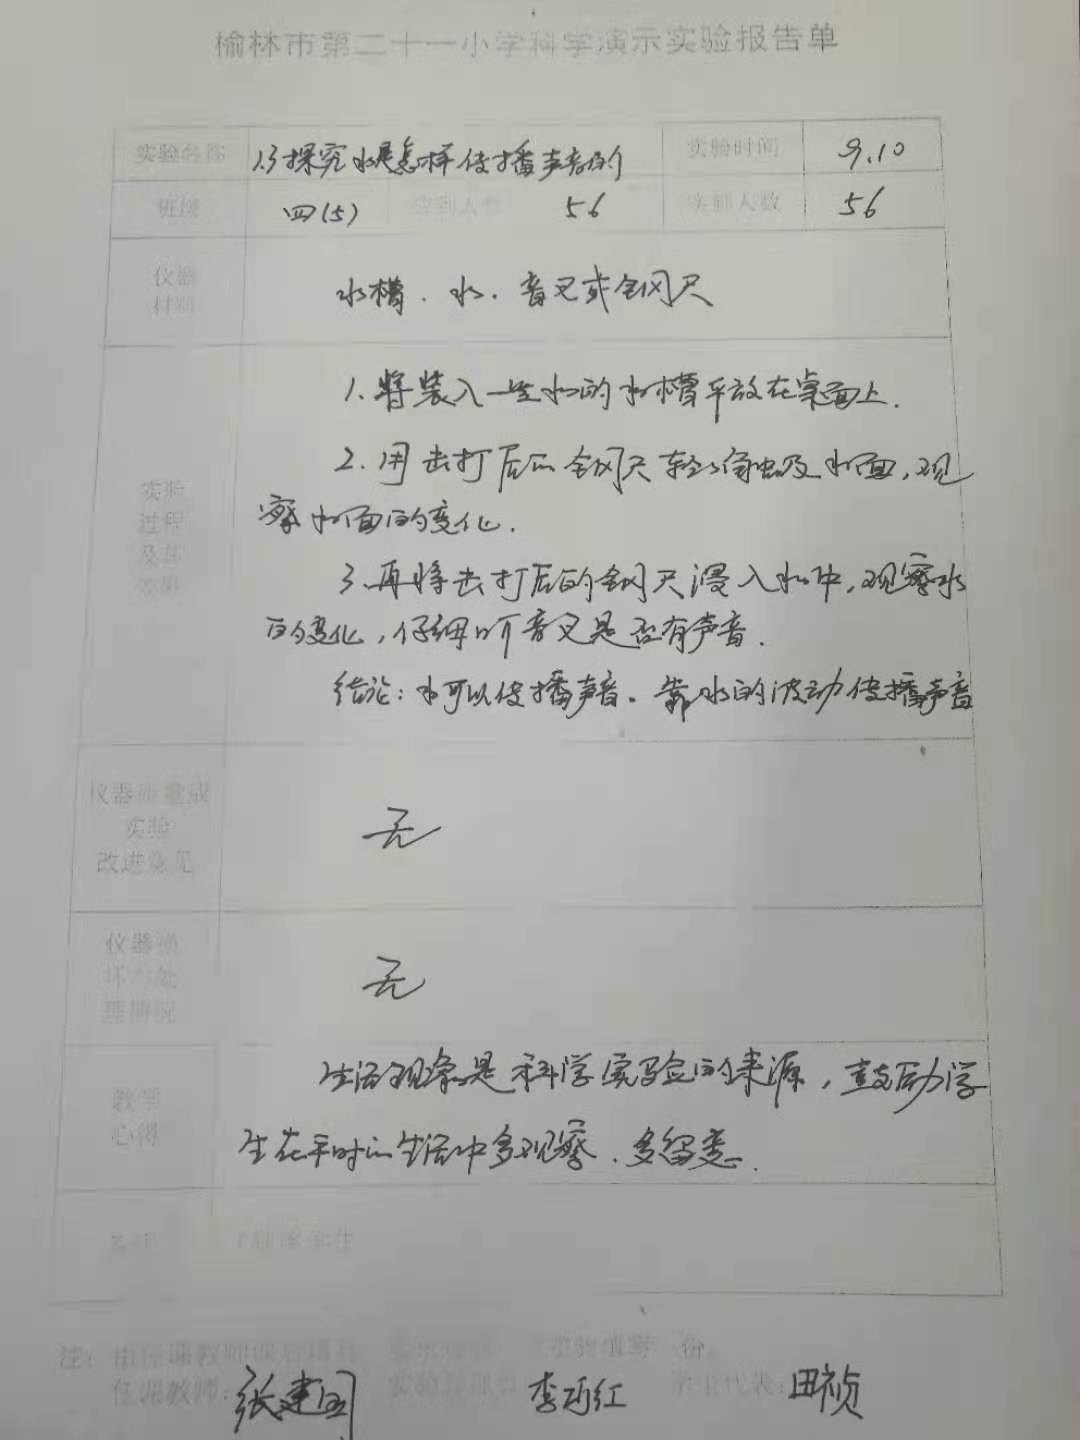 榆林市第二十一小学科学演示实验报告单
实验名称 1.3探究水是怎样传播声音的 实验时间 9.10
班级 四(5) 应到人数 56 实到人数 56
仪器
材料
水槽、水、音叉或钢尺
1.将装入一些水的水槽平放在桌面上.
2.用击打后的钢尺轻轻触及水面,观
察水面的变化.
实验
过程
及其
效果
3.再将击打后的钢尺浸入水中,观察水
的变化,仔细听音叉是否有声音.
结论:水可以传播声音。靠水的波动传播声音
仪器质量或
实验
改进意见
无
仪器损
坏及处
理情况
无
教学
心得
生活现象是科学实验的来源,鼓励学
生在平时的生活中多观察、多留意.
注:由任课教师 实验填写 份。
任课教师:张建国 李巧红 学生代表:田祯